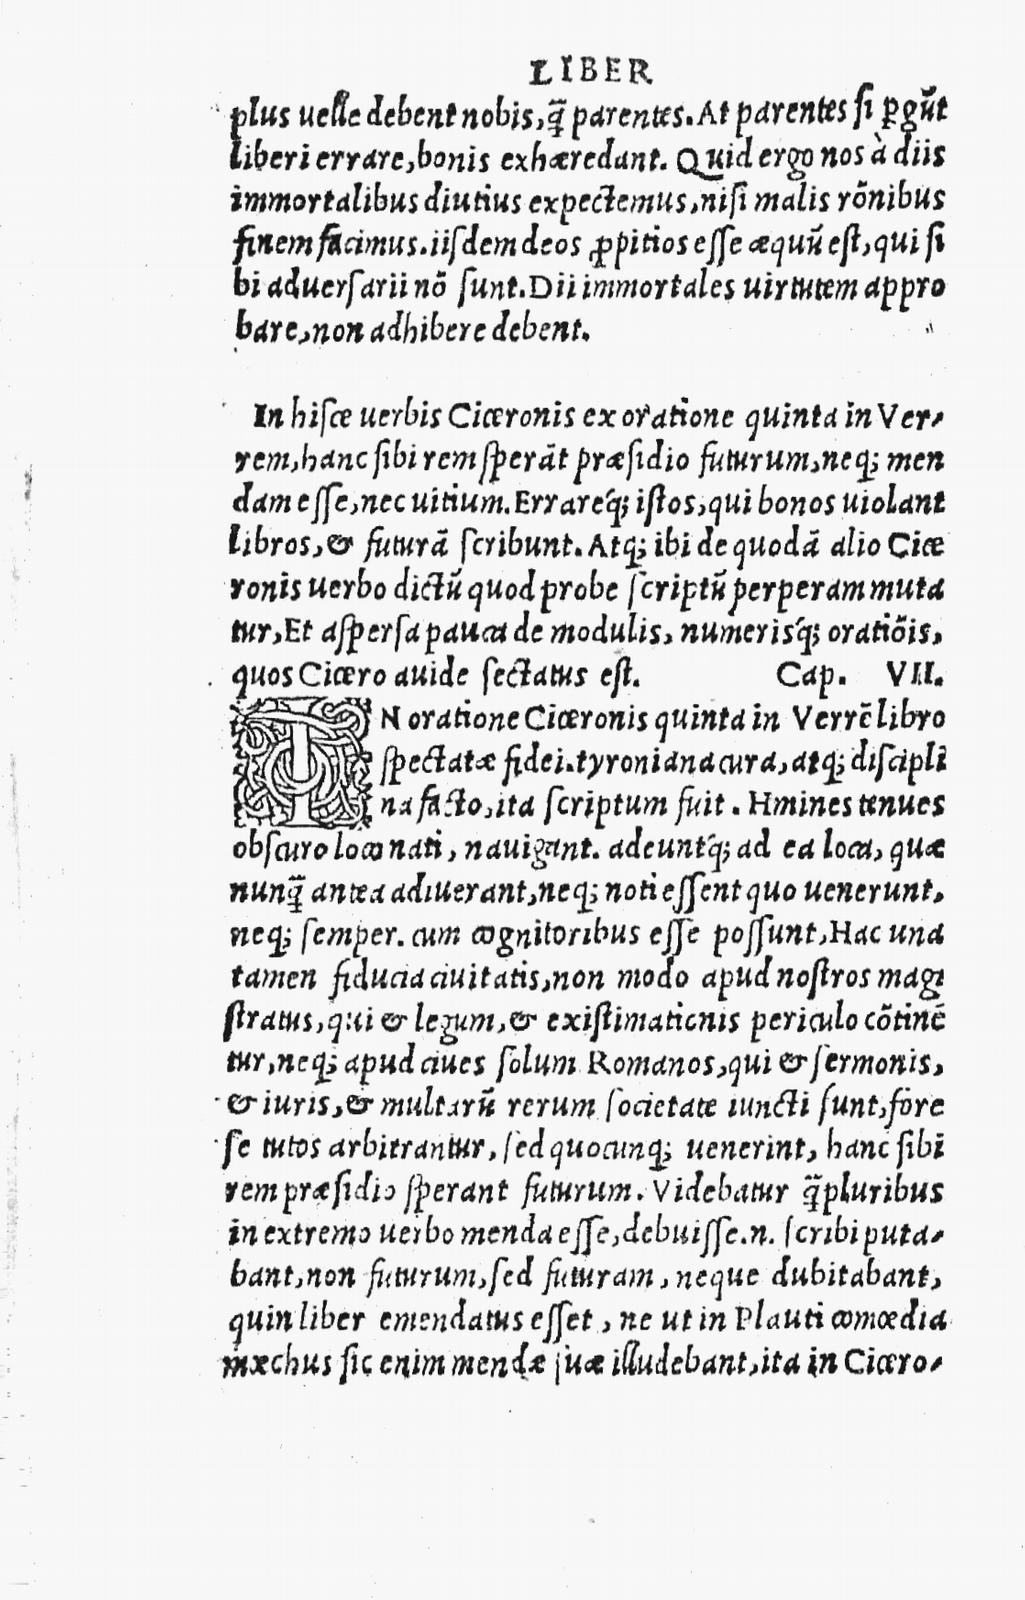 LIBER
plus uelle debent nobis, q̃ parentes. At parentes ſi ꝑgũt
liberi errare, bonis exhæredant. Quid ergo nos à diis
immortalibus diutius expectemus, niſi malis rõnibus
finem facimus. iiſdem deos ꝓpitios eſſe æquũ eſt, qui ſi
bi aduerſarii nõ ſunt. Dii immortales uirtutem appro
bare, non adhibere debent.
In hiſce uerbis Ciceronis ex oratione quinta in Ver-
rem, hanc ſibi rem ſperãt præſidio futurum, neq; men
dam eſſe, nec uitium. Errareq́; iſtos, qui bonos uiolant
libros, & futurã ſcribunt. Atq; ibi de quodã alio Cice
ronis uerbo dictũ quod probe ſcriptũ perperam muta
tur, Et aſperſa pauca de modulis, numerisq́; oratiõis,
quos Cicero auide ſectatus eſt. Cap. VII.
IN oratione Ciceronis quinta in Verrẽ libro
ſpectatæ fidei. tyroniana cura, atq; diſcipli
na facto, ita ſcriptum fuit. Hmines tenues
obſcuro loco nati, nauigant. adeuntq́; ad ea loca, quæ
nunq̃ antea adiuerant, neq; noti eſſent quo uenerunt,
neq; ſemper. cum cognitoribus eſſe poſſunt, Hac una
tamen fiducia ciuitatis, non modo apud noſtros magi
ſtratus, qui & legum, & exiſtimationis periculo cõtinẽ
tur, neq; apud ciues ſolum Romanos, qui & ſermonis,
& iuris, & multarũ rerum ſocietate iuncti ſunt, fore
ſe tutos arbitrantur, ſed quocunq; uenerint, hanc ſibi
rem præſidio ſperant futurum. Videbatur q̃pluribus
in extremo uerbo menda eſſe, debuiſſe.n. ſcribi puta-
bant, non futurum, ſed futuram, neque dubitabant,
quin liber emendatus eſſet, ne ut in Plauti comœdia
mœchus ſic enim mendæ ſuæ illudebant, ita in Cicero-